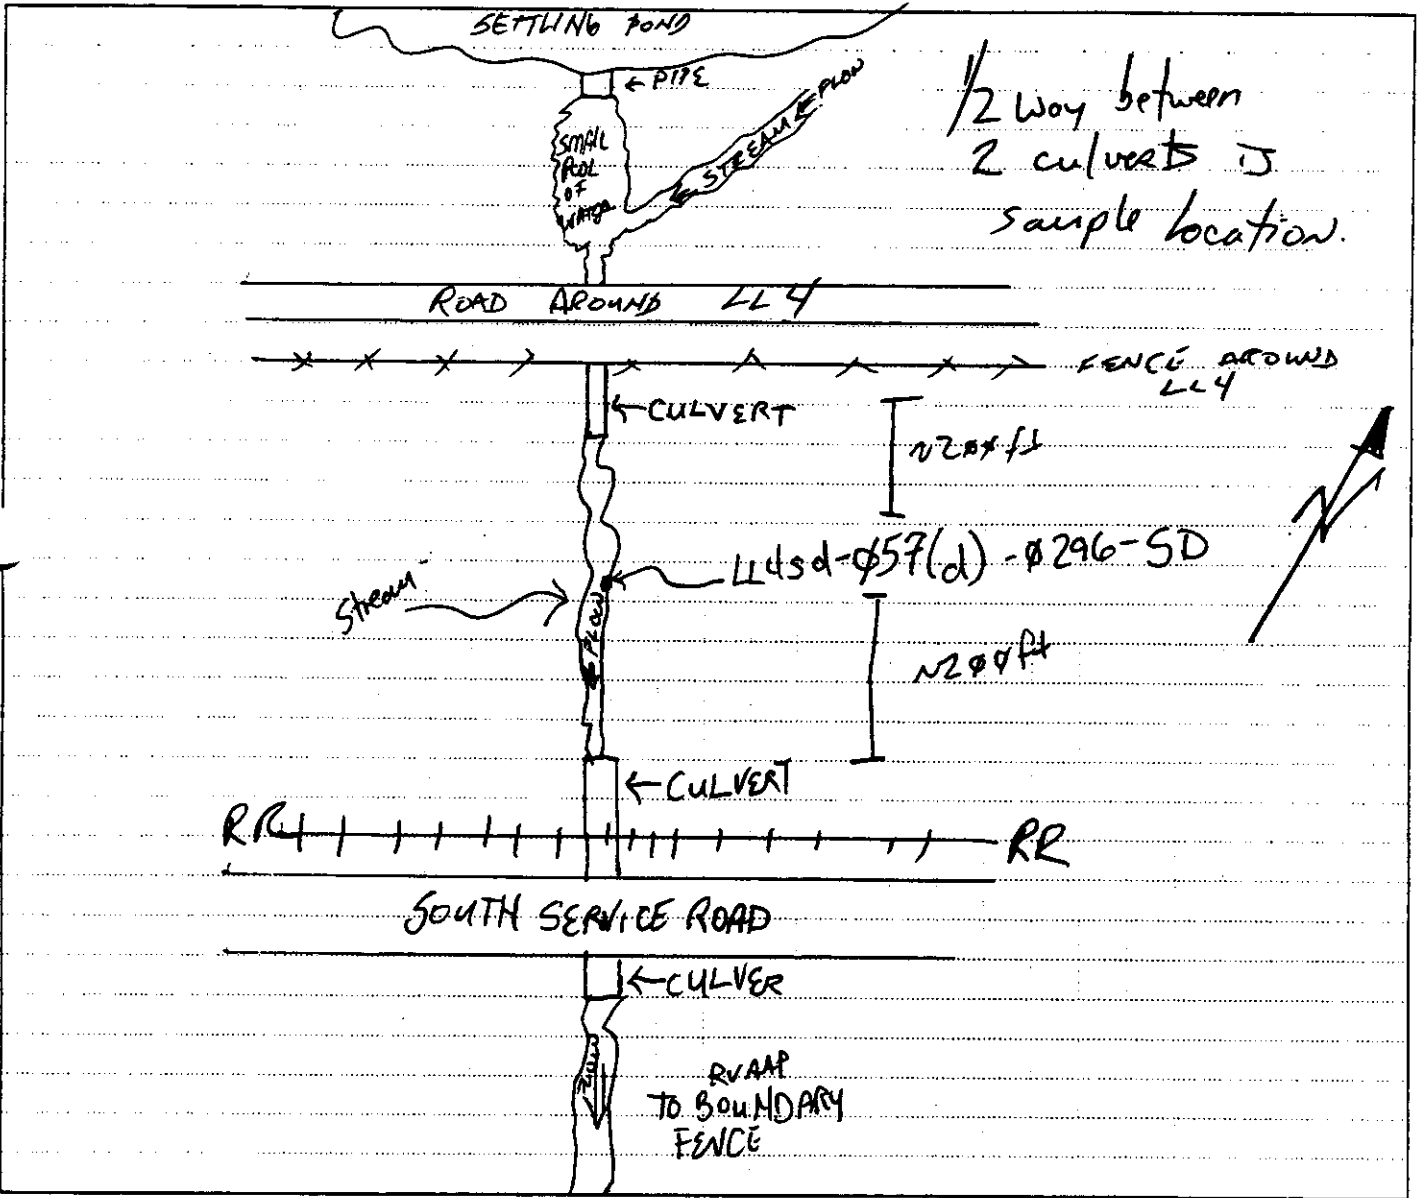 SETTLING POND
← PIPE
← FLOW
STREAM
SMALL
POOL
OF
WATER
1/2 way between
2 culverts is
sample location.
ROAD AROUND LL4
FENCE AROUND
LL4
← CULVERT
~2ØØ ft
N
LL4sd-Ø57(d)-Ø296-SD
Stream
FLOW
~2ØØ ft
← CULVERT
RR
RR
SOUTH SERVICE ROAD
← CULVER
FLOW
RVAAP
TO BOUNDARY
FENCE